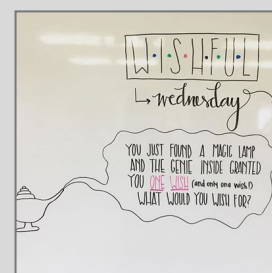 W•I•S•H•F•U•L
wednesday
YOU JUST FOUND A MAGIC LAMP
AND THE GENIE INSIDE GRANTED
YOU ONE WISH (and only one wish!)
WHAT WOULD YOU WISH FOR?